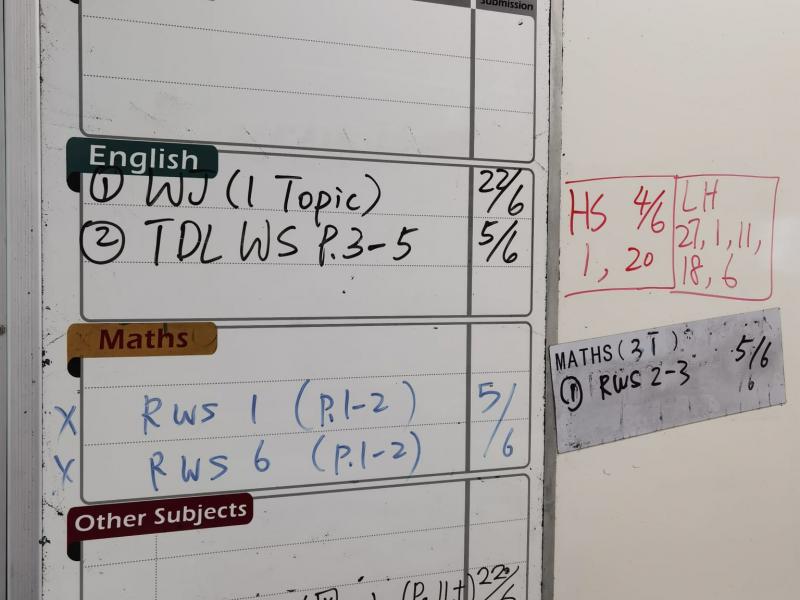 Submission
English
① WJ (1 Topic) 22/6
② TDL WS P.3-5 5/6
Maths
X RWS 1 (P.1-2) 5/
X RWS 6 (P.1-2) /6
Other Subjects
22/6
HS 4/6
1, 20
LH
27, 1, 11,
18, 6
MATHS (3T) 5/6
① RWS 2-3